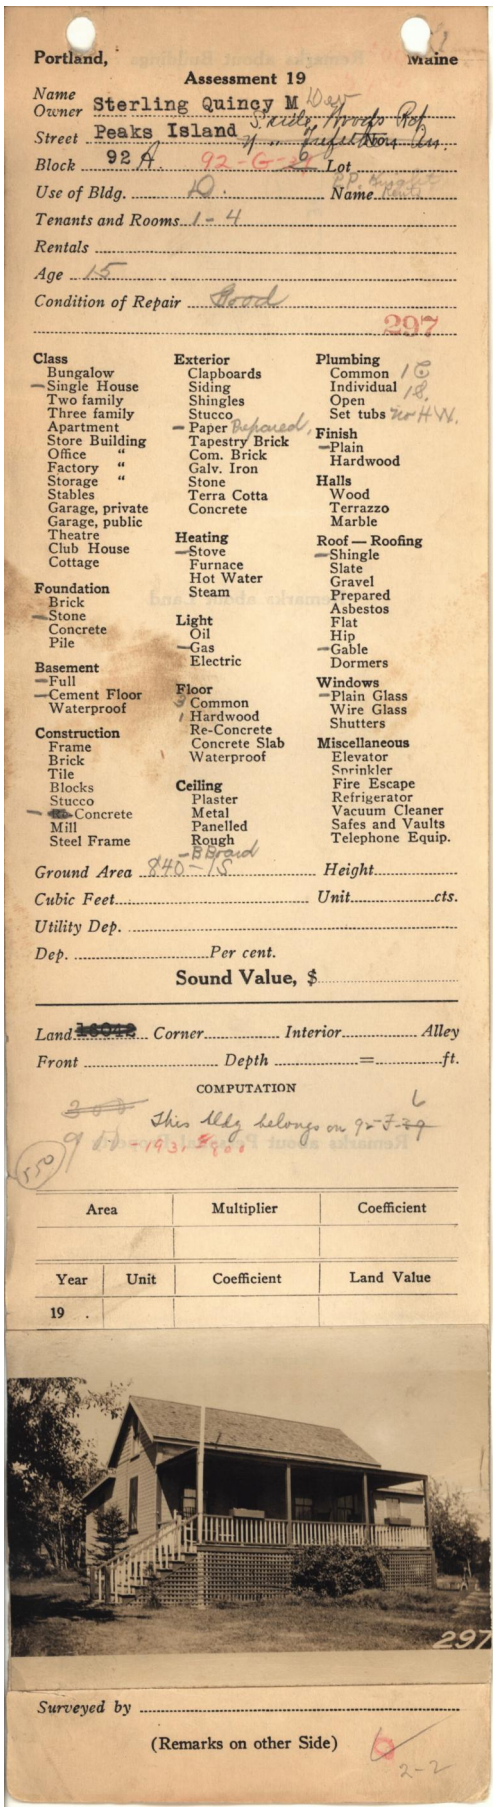 Portland, Maine
Assessment 19
Name
Owner Sterling Quincy M Dev
Street Peaks Island S side Woods Rd
Block 92 A. 92-G- Lot
Use of Bldg. D. Name
Tenants and Rooms 1-4
Rentals
Age 15
Condition of Repair Good
297
Class
Bungalow
Single House
Two family
Three family
Apartment
Store Building
Office "
Factory "
Storage "
Stables
Garage, private
Garage, public
Theatre
Club House
Cottage
Foundation
Brick
Stone
Concrete
Pile
Basement
Full
Cement Floor
Waterproof
Construction
Frame
Brick
Tile
Blocks
Stucco
Concrete
Mill
Steel Frame
Exterior
Clapboards
Siding
Shingles
Stucco
Paper Prepared,
Tapestry Brick
Com. Brick
Galv. Iron
Stone
Terra Cotta
Concrete
Heating
Stove
Furnace
Hot Water
Steam
Light
Oil
Gas
Electric
Floor
3 Common
1 Hardwood
Re-Concrete
Concrete Slab
Waterproof
Ceiling
Plaster
Metal
Panelled
Rough
B Board
Plumbing
Common 1 C
Individual 1 S.
Open
Set tubs no H W.
Finish
Plain
Hardwood
Halls
Wood
Terrazzo
Marble
Roof — Roofing
Shingle
Slate
Gravel
Prepared
Asbestos
Flat
Hip
Gable
Dormers
Windows
Plain Glass
Wire Glass
Shutters
Miscellaneous
Elevator
Sprinkler
Fire Escape
Refrigerator
Vacuum Cleaner
Safes and Vaults
Telephone Equip.
Ground Area 840-1S Height
Cubic Feet Unit cts.
Utility Dep.
Dep. Per cent.
Sound Value, $
Land 16042 Corner Interior Alley
Front Depth = ft.
COMPUTATION
300
6
This bldg belongs on 92-F-29
-1931 $800
550
Area Multiplier Coefficient
Year Unit Coefficient Land Value
19 .
297
Surveyed by
(Remarks on other Side)
6
2-2